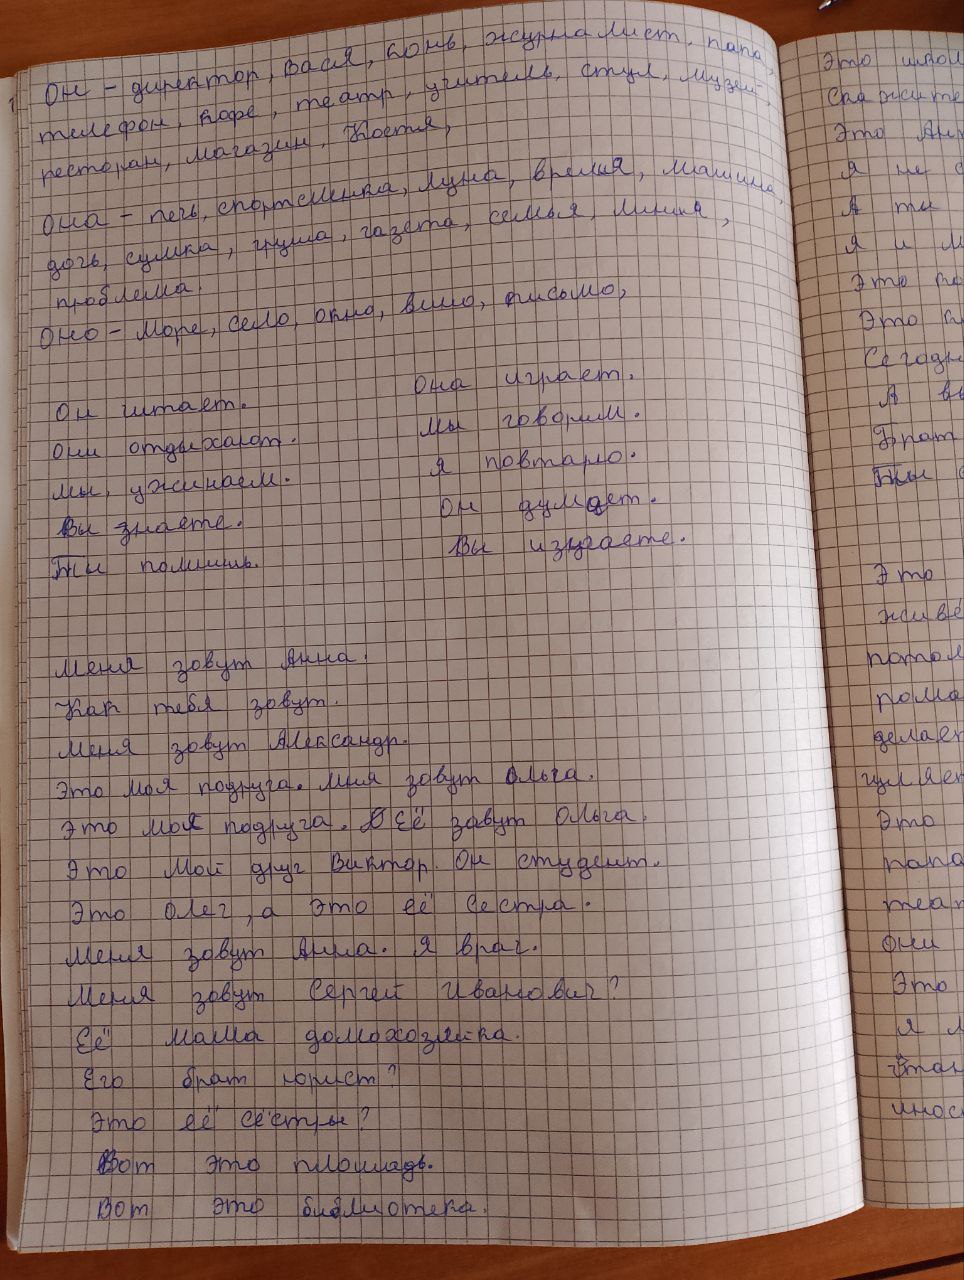 Он – директор, Вася, конь, журналист, папа,
телефон, кофе, театр, учитель, стул, музей,
ресторан, магазин, Костя,
Она – печь, спортсменка, луна, время, машина,
дочь, сумка, груша, газета, семья, линия,
проблема.
Оно – море, село, окно, вино, письмо,
Он читает.
Они отдыхают.
Мы, ужинаем.
Вы знаете.
Ты помишь.
Она играет.
Мы говорим.
Я повтаю.
Он думает.
Вы изучаете.
Меня зовут Анна.
Как тебя зовут.
Меня зовут Александр.
Это моя подруга. Мня зовут Ольга.
Это моя подруга. Её завут Ольга.
Это мой друг Виктор. Он студент.
Это Олег, а это её сестра.
Меня зовут Анна. Я врач.
Меня зовут Сергей Иванович?
Её мама домохозяйка.
Его брат юрист?
Это её сёстры?
Вот это площадь.
Вот это библиотека.
Это
Это
Я не
А ты
Я и
Это
Это
А
Брат
Ты
Это
живё
делает
гуляет
Это
папа
они
Это
Я